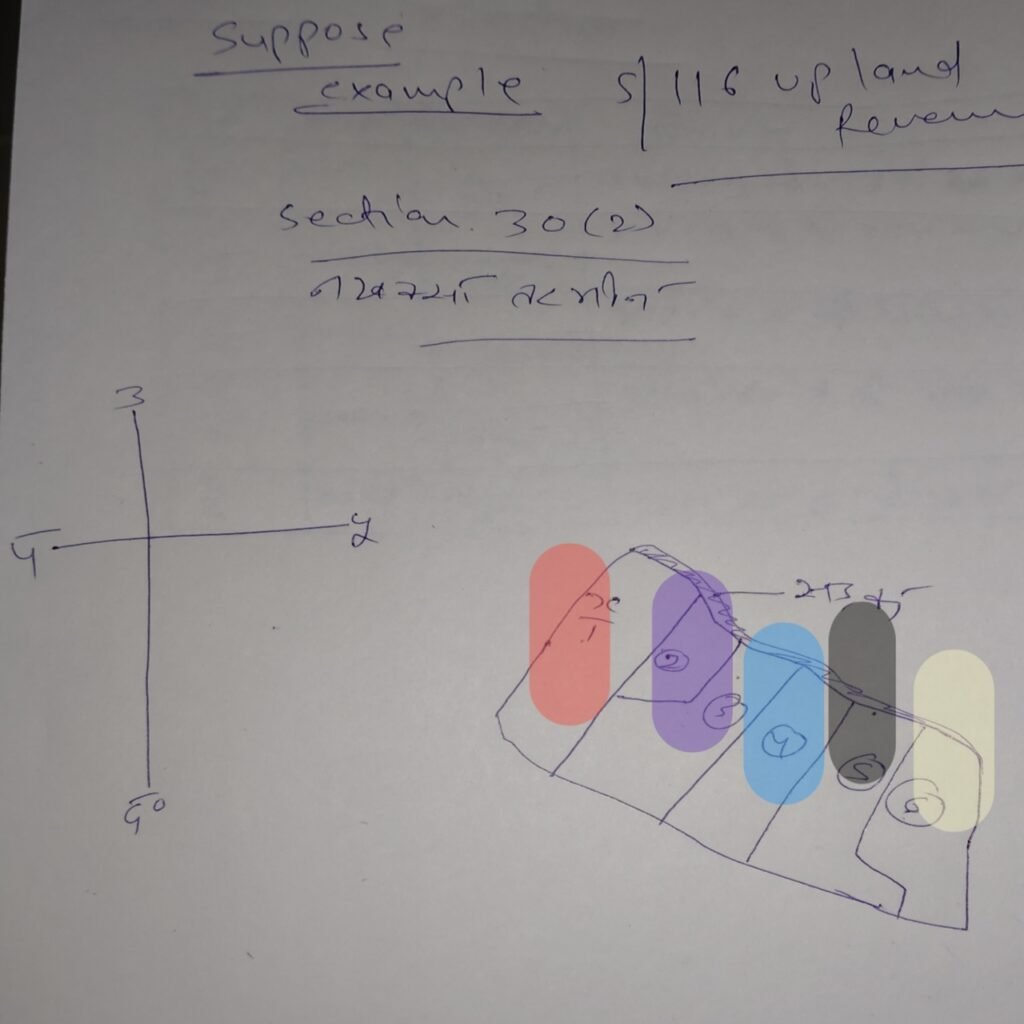 Suppose
example
S/116 up land
Revenu
Section 30(2)
नक्शा तरमीम
उ
प
y
द०
सड़क
1
2
3
4
5
6